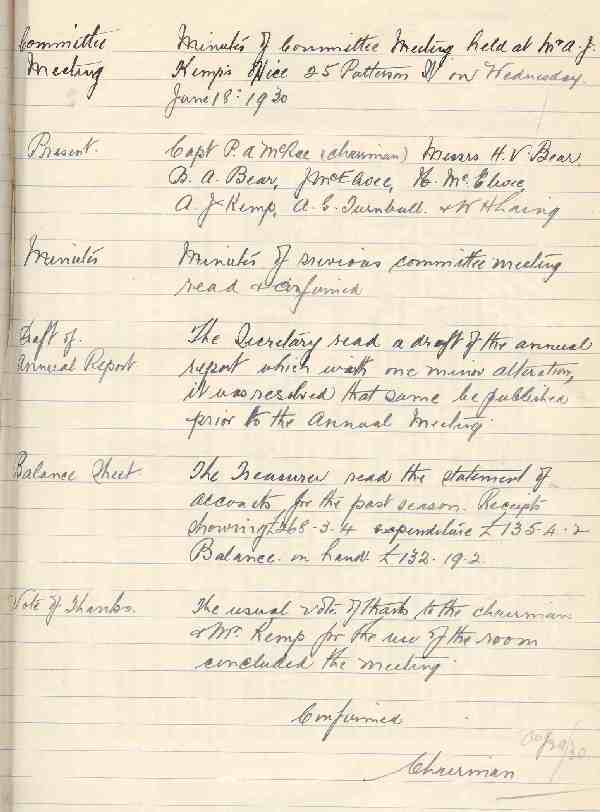 Committee Minutes of Committee Meeting held at Mr A. J.
Meeting Kemp's Office 25 Patterson St on Wednesday
June 18th 1930
Present. Capt P. A McRae (chairman) Messrs H. V. Bear,
B. A. Bear, J McElwee, H. Mc.Elwee,
A. J Kemp, A. E. Turnbull. & W H Laing
Minutes Minutes of previous committee meeting
read & confirmed
Draft of. The Secretary read a draft of the annual
Annual Report report which with one minor alteration,
it was resolved that same be published
prior to the Annual Meeting.
Balance Sheet The Treasurer read the statement of
accounts for the past season. Receipts
showing £268-3-4 expenditure £135-4-2
Balance on hand £132-19-2.
Vote of Thanks. The usual vote of thanks to the chairman
& Mr. Kemp for the use of the room
concluded the meeting.
Confirmed
Chairman